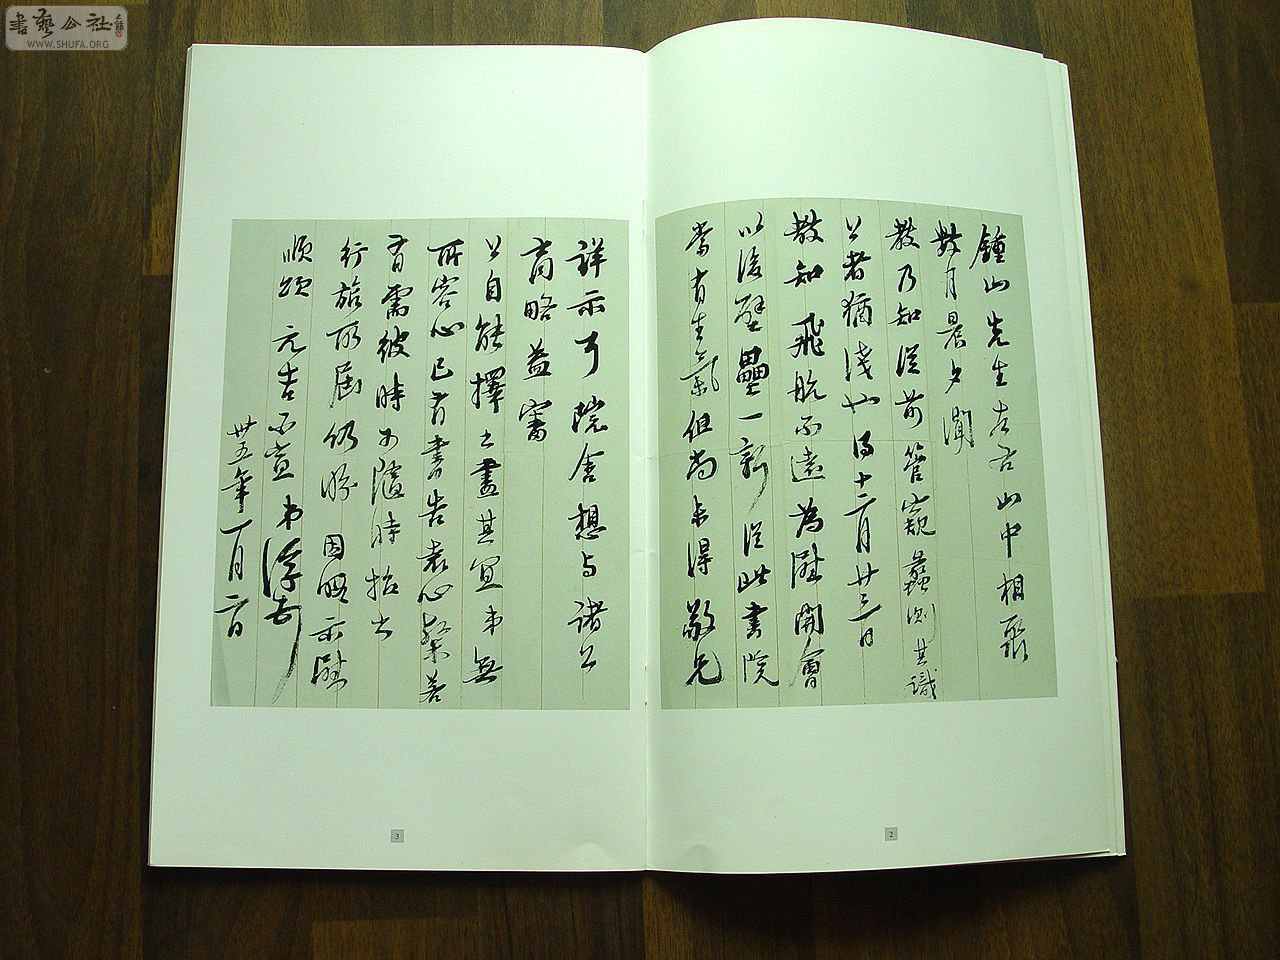 書藝公社
WWW.SHUFA.ORG
鍾山先生左右山中相聚
數月晨夕聞
教乃知從前管窺蠡測其識
公者猶淺也得十二月廿三日
教知飛航不遠為慰開會
以後壁壘一新從此書院
當有生氣但尚未得敬兄
詳示耳院舍想与諸公
商略益審
公自能擇之盡其宜弟無
所容心已有書告袁心粲若
有需彼時可隨時招出
行旅所屆仍盼因風示慰
順頌元吉不宣弟浮頓首
廿五年一月二日
3
2